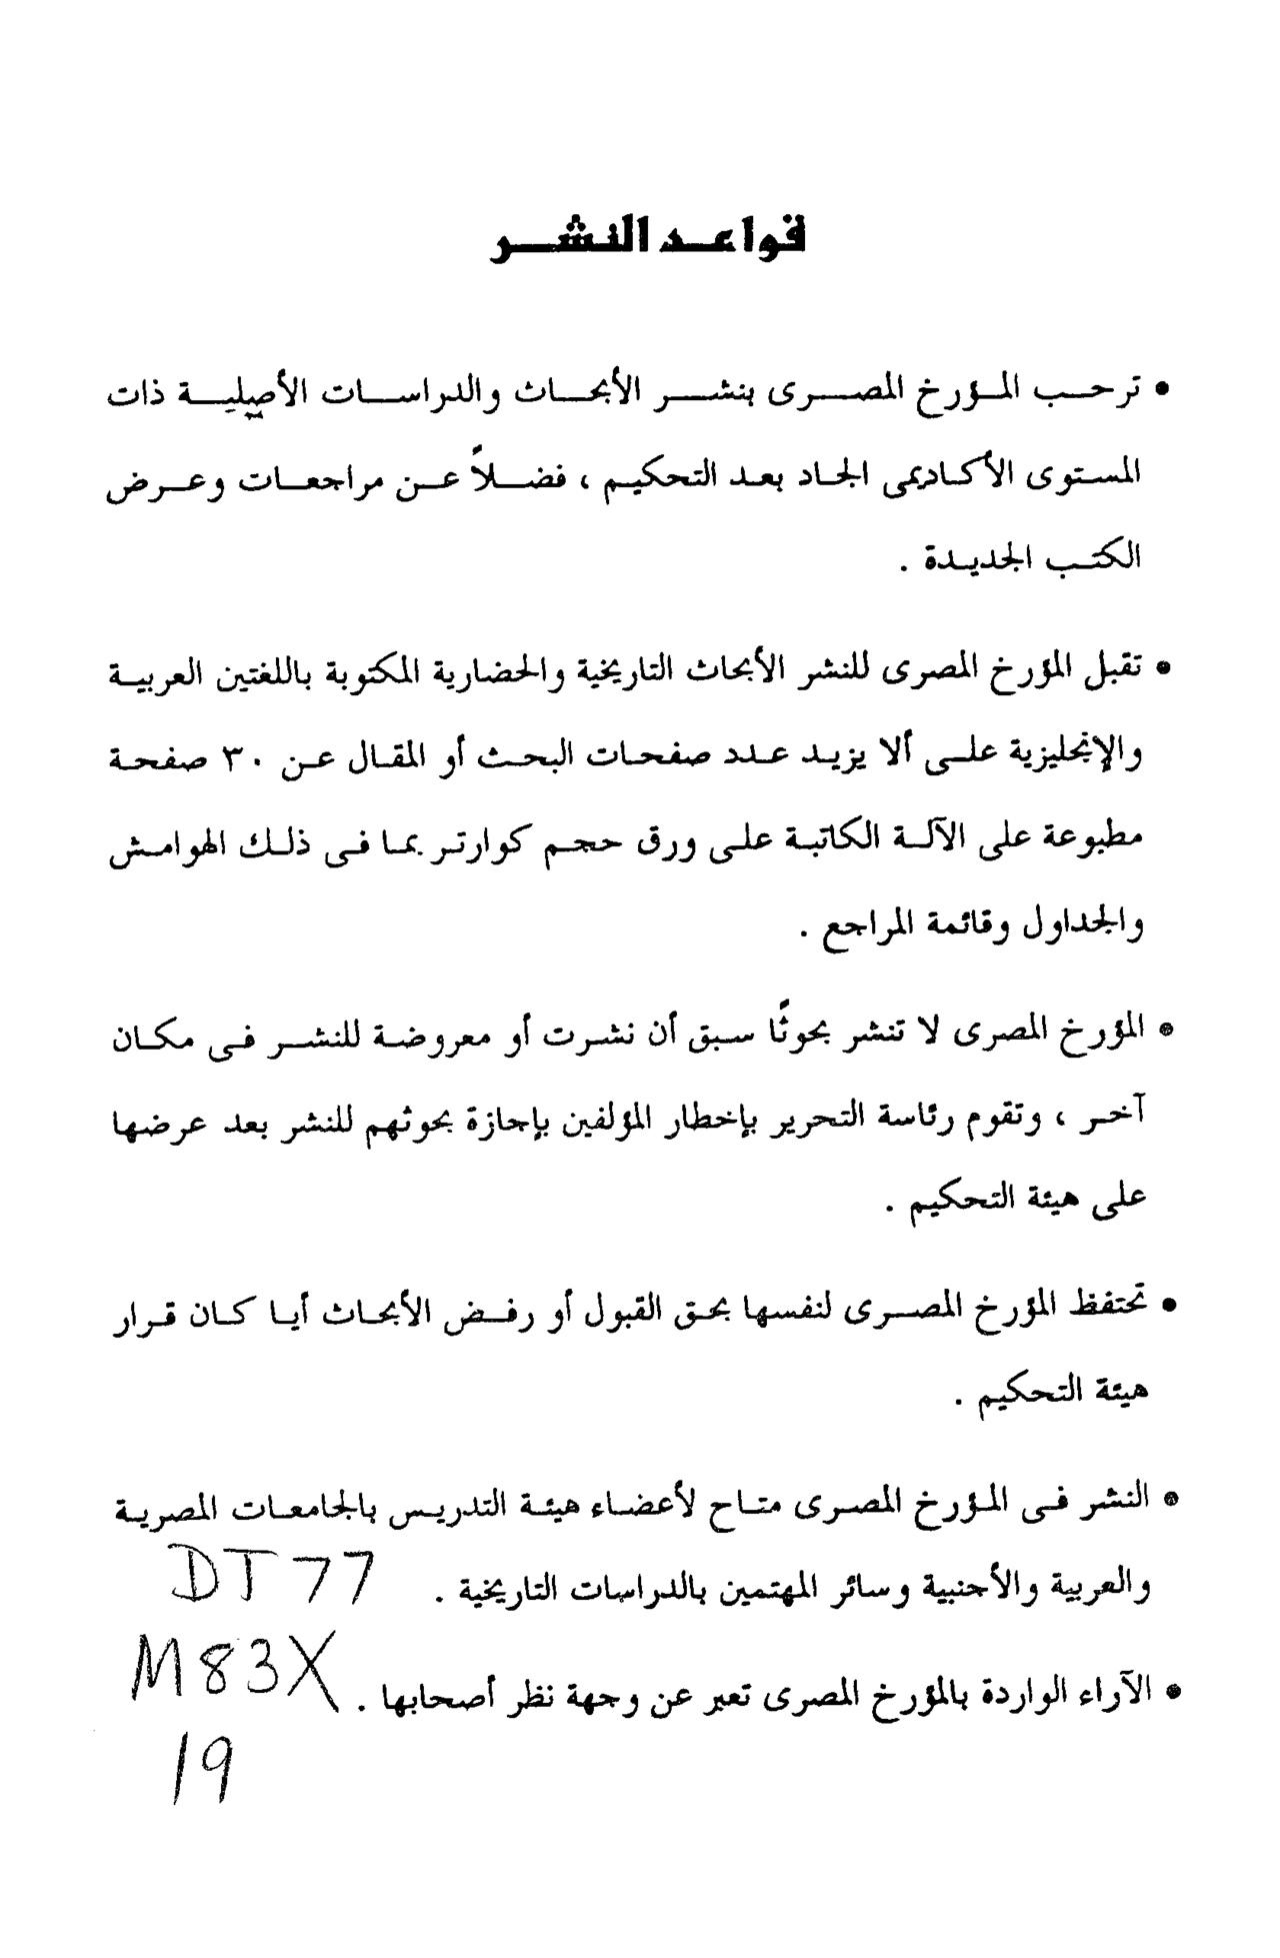 قواعد النشر
• ترحب المؤرخ المصرى بنشر الأبحاث والدراسات الأصيلية ذات
المستوى الأكاديمى الجاد بعد التحكيم ، فضلاً عن مراجعات وعرض
الكتب الجديدة .
• تقبل المؤرخ المصرى للنشر الأبحاث التاريخية والحضارية المكتوبة باللغتين العربية
والإنجليزية على ألا يزيد عدد صفحات البحث أو المقال عن ٣٠ صفحة
مطبوعة على الآلة الكاتبة على ورق حجم كوارتر بما فى ذلك الهوامش
والجداول وقائمة المراجع .
• المؤرخ المصرى لا تنشر بحوثًا سبق أن نشرت أو معروضة للنشر فى مكان
آخر ، وتقوم رئاسة التحرير بإخطار المؤلفين بإجازة بحوثهم للنشر بعد عرضها
على هيئة التحكيم .
• تحتفظ المؤرخ المصرى لنفسها بحق القبول أو رفض الأبحاث أيا كان قرار
هيئة التحكيم .
• النشر فى المؤرخ المصرى متاح لأعضاء هيئة التدريس بالجامعات المصرية
والعربية والأجنبية وسائر المهتمين بالدراسات التاريخية .
DT77
• الآراء الواردة بالمؤرخ المصرى تعبر عن وجهة نظر أصحابها .
M83X
19